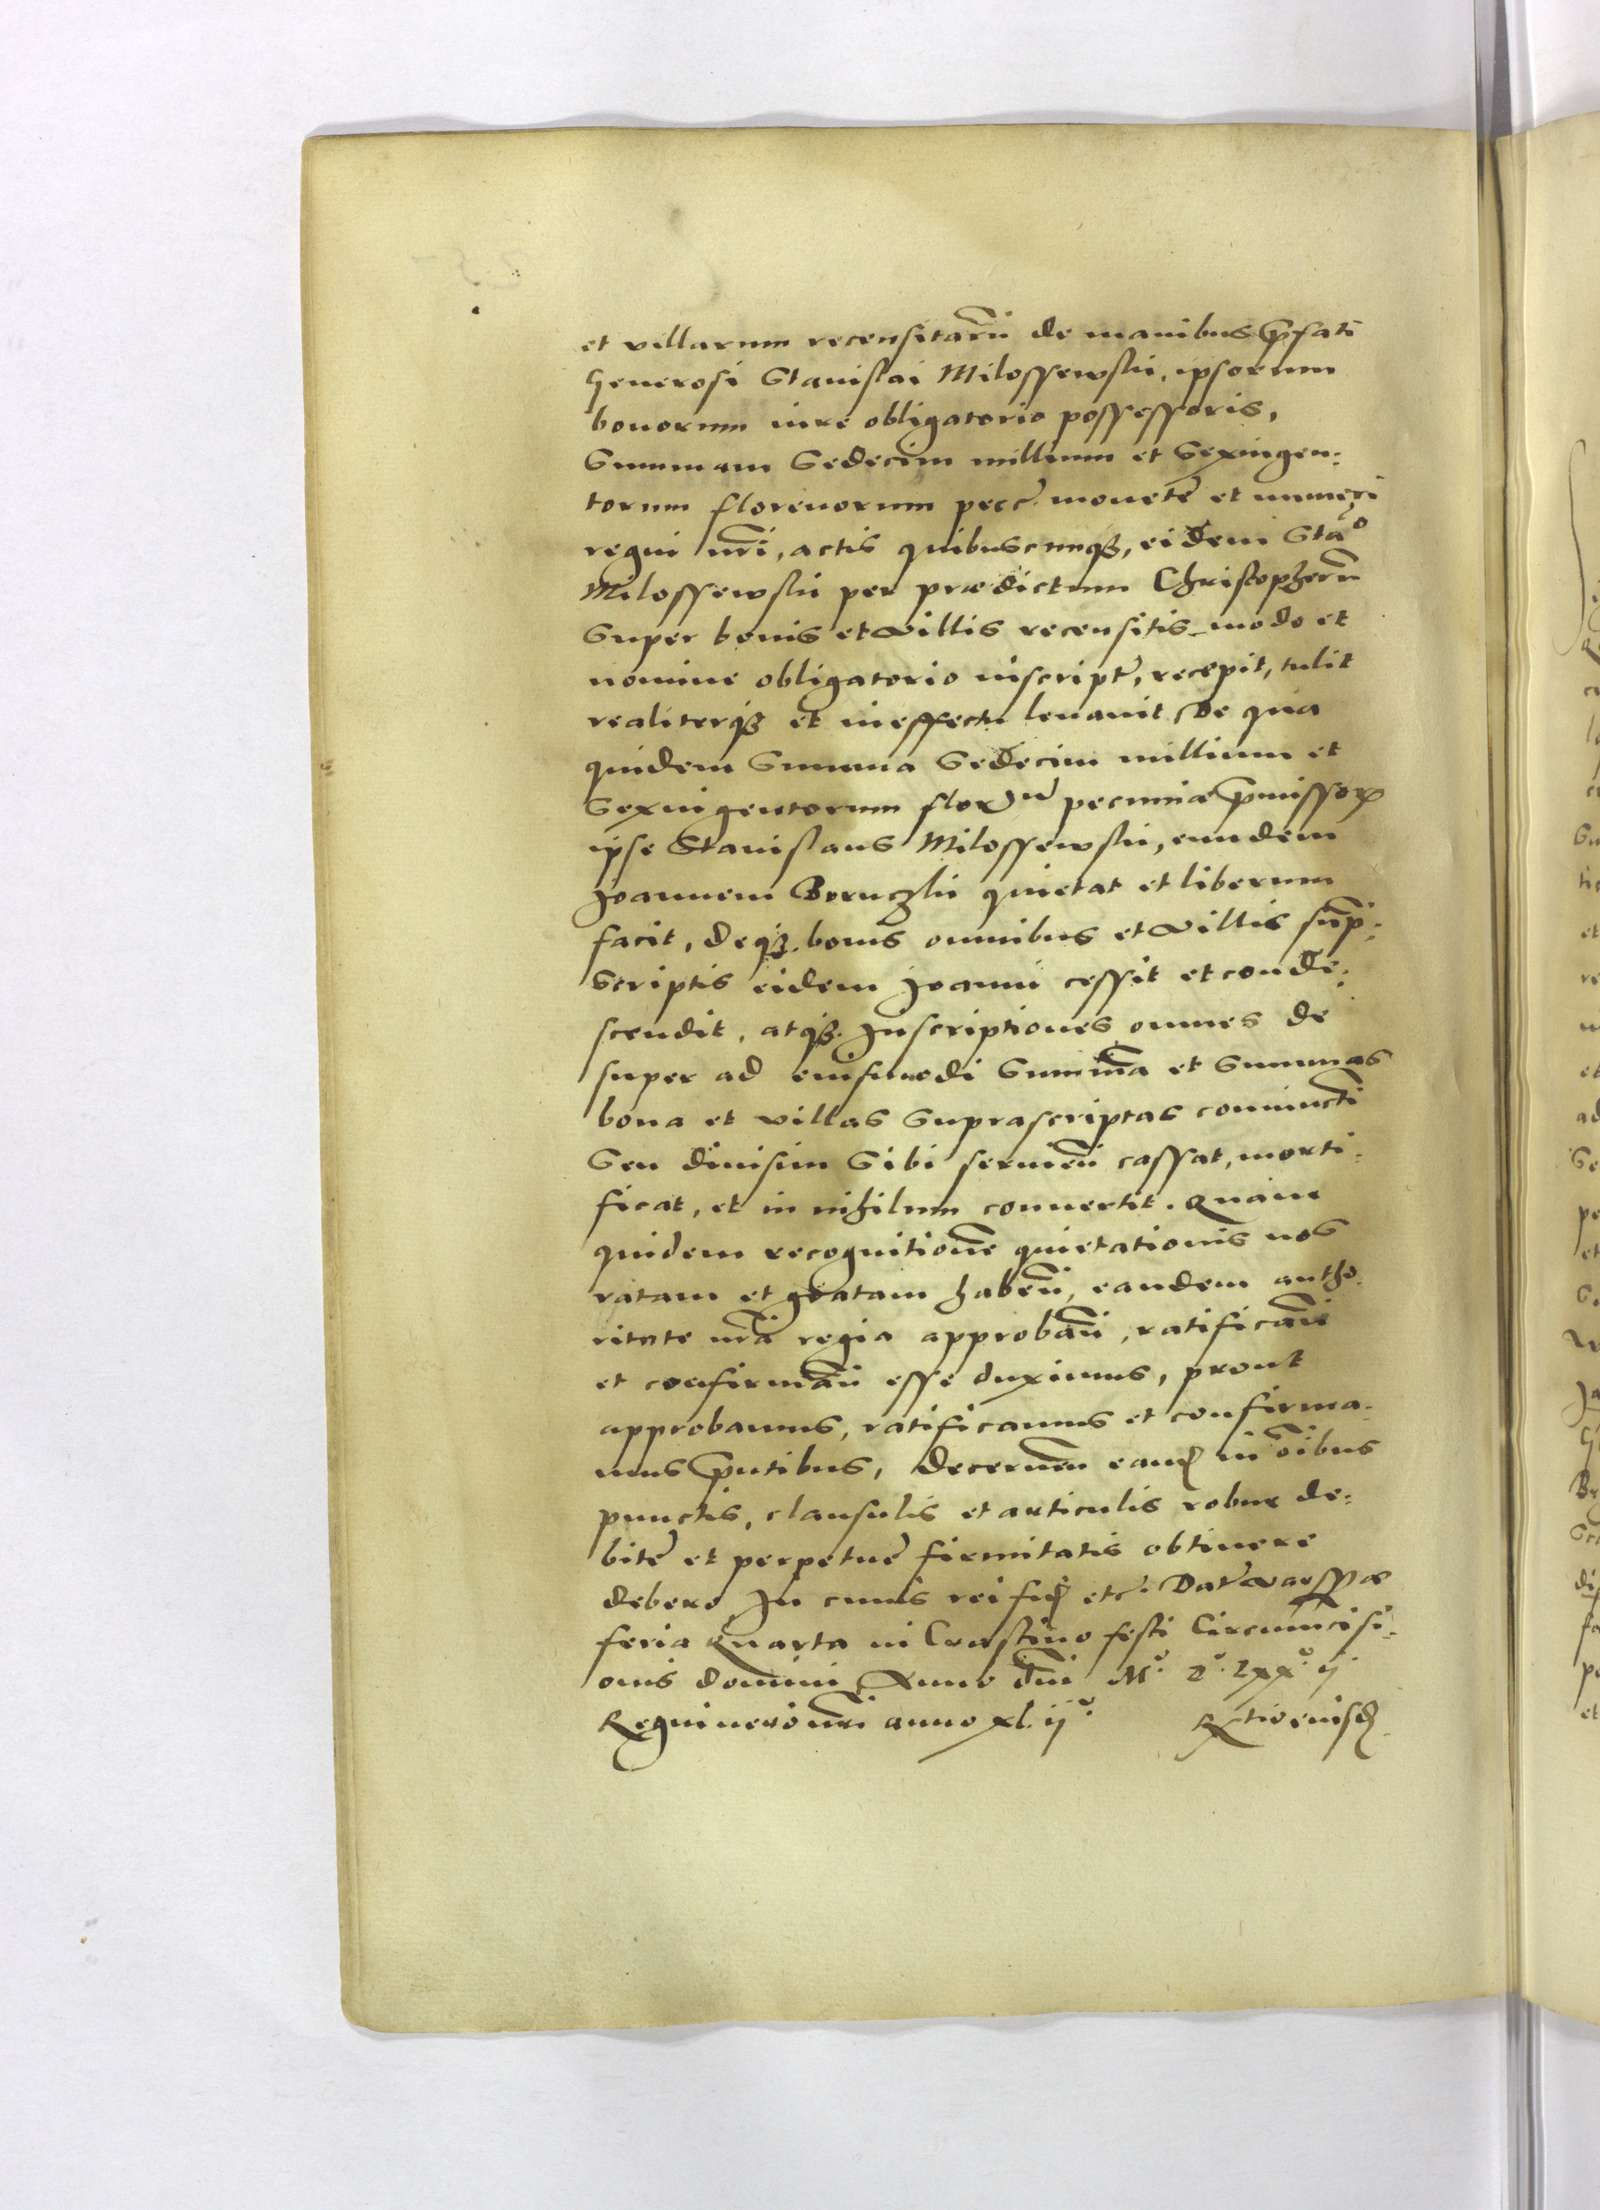 et villarum recensitarũ de manibus p̃fati
Generosi Stanislai Milossewski, ipsorum
bonorum iure obligatorio possessoris,
Summam Sedecim millium et Sexingen-
torum florenorum pecc̃ monetæ̃ et numeri
regni nr̃i, actis quibuscunq₃, eidem Stãᵒ
Milossewski per prædictum Christopherũ
Super bonis et villis recensitis modo et
nomine obligatorio inscript̃, recepit, tulit
realiterq₃ et in effectu leuauit De qua
quidem Summa Sedecim millium et
Sexingentorum florũ pecuniæ p̃missorꝝ
ipse Stanislaus Milossewski, eundem
Joannem Boruczki quietat et liberum
facit, deq₃ bonis omnibus et villis sup̃-
scriptis eidem Joanni cessit et conde-
scendit, atq₃ Inscriptiones omnes de
super ad eiusmodi Summã et Summas
bona et villas Suprascriptas coniunctĩ
Seu diuisim Sibi seruieñ cassat, morti-
ficat, et in nihilum conuertit. Quam
quidem recognitionẽ quietationis nos
ratam et gratam habeñ, eandem autho-
ritate nr̃a regia approbañ, ratificañ
et confirmañ esse duximus, prout
approbamus, ratificamus et confirma-
mus p̃ntibus, decerneñ eand in oĩbus
punctis, clausulis et articulis robur de-
bitẽ et perpetuẽ firmitatis obtinere
debere In cuius rei fid etc̃. Dat̃ Varssoviæ
feria Quarta in Crastino festi Circumcisi-
onis domini Anno dñi Mº Dº Lxxº ij
Regni vero nr̃i anno xl. ijº R̃tio eiusd